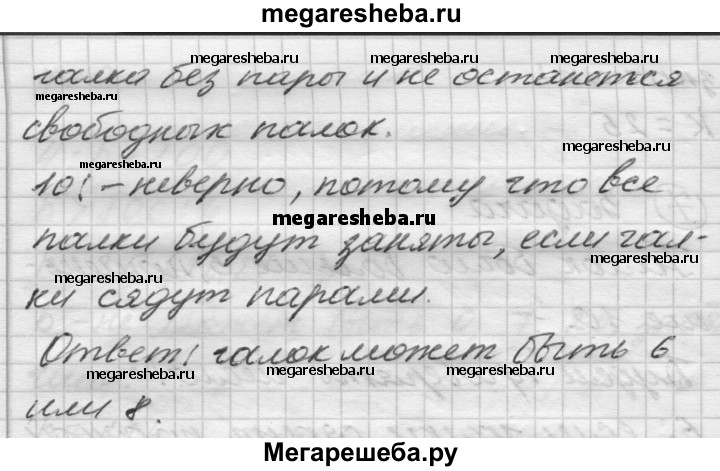 megaresheba.ru
megaresheba.ru megaresheba.ru megaresheba.ru
галка без пары и не останется
megaresheba.ru
свободных палок.
megaresheba.ru
megaresheba.ru
10! – неверно, потому что все
megaresheba.ru
палки будут заняты, если гал-
megaresheba.ru megaresheba.ru
ки сядут парами.
megaresheba.ru
Ответ! галок может быть 6
megaresheba.ru megaresheba.ru megaresheba.ru
или 8.
Мегарешеба.ру